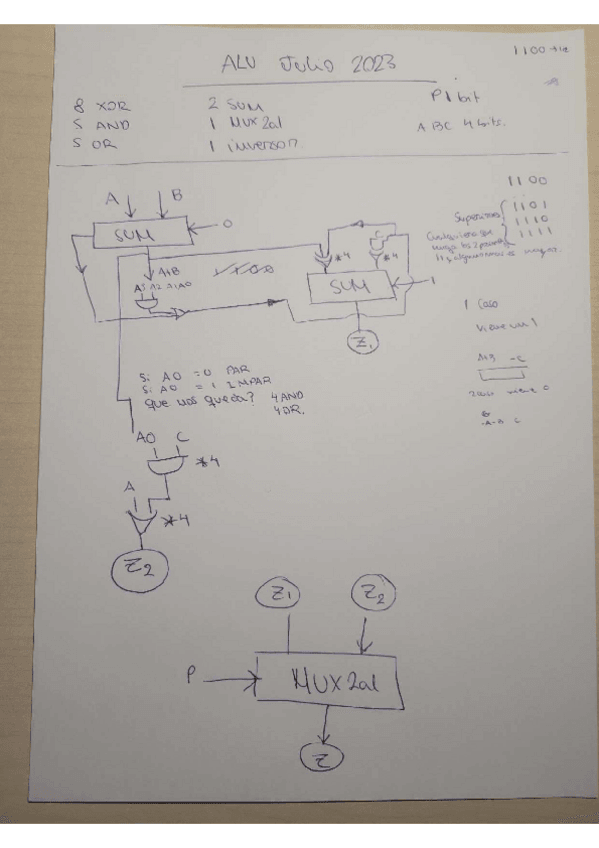 ALU Julio 2023
1100 → 12
8 XOR 2 SUM P 1 bit
5 AND 1 Mux 2al A B C 4 bits.
5 OR 1 inversor
1100
A B
SUM 0
Superiores 1101
1110
1111
Cualquiera que
tenga los 2 primeros
11 y alguno mas es mayor.
A+B
A3 A2 A1 A0
C
*4 *4
SUM 1
Z1
1 Caso
Viene un 1
A+B -C
viene 0
-A-B C
Si A0 = 0 PAR
Si A0 = 1 IMPAR
que nos queda? 4 AND
4 OR.
A0 C
*4
A
*4
Z2
Z1 Z2
P MUX 2al
Z